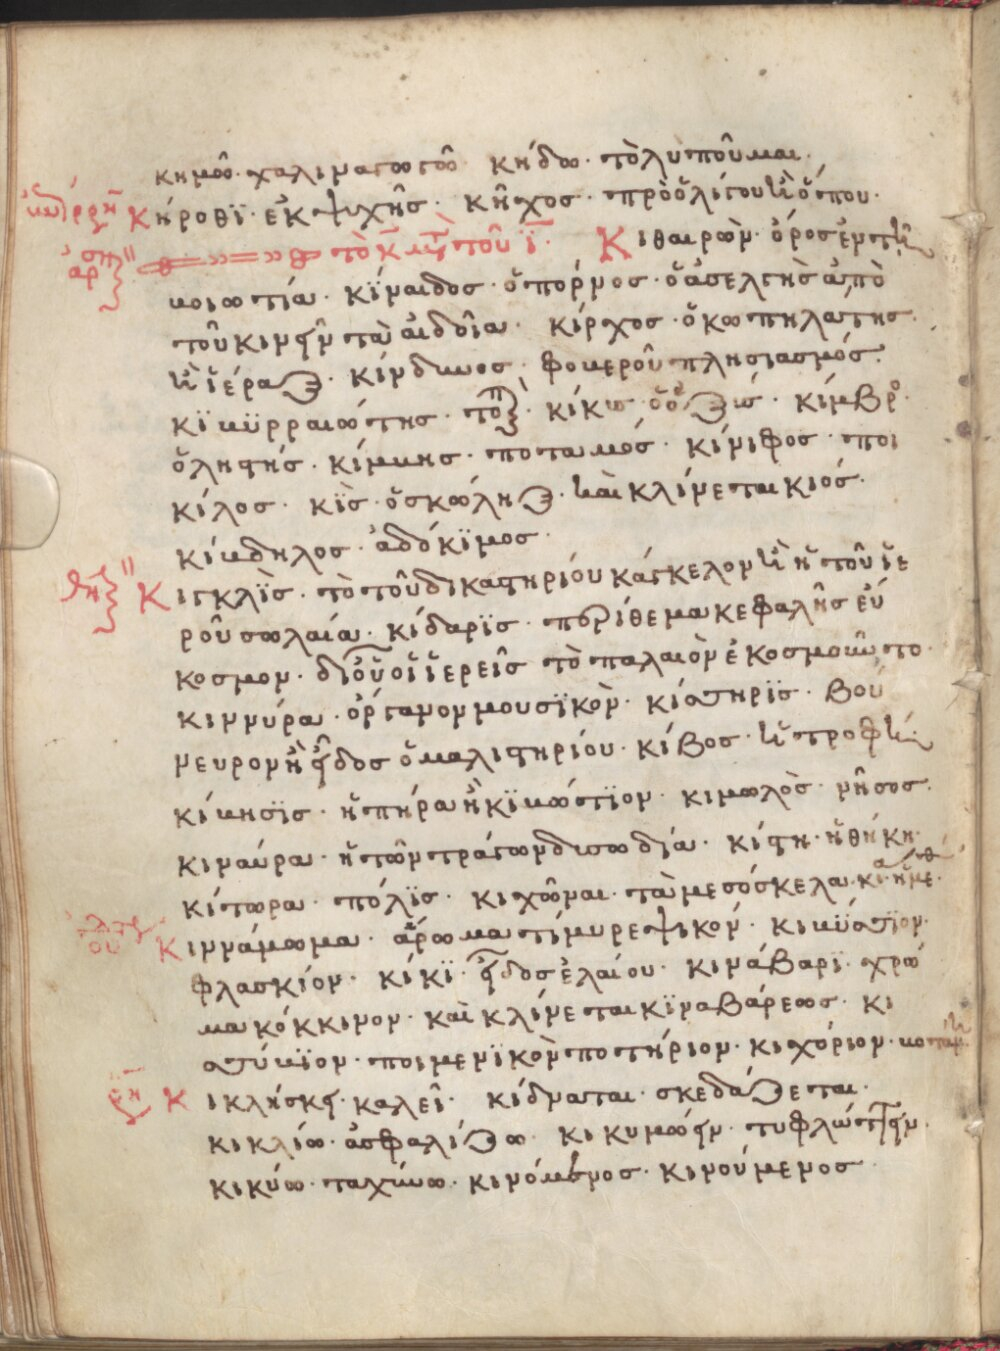 κημῶ· χαλιναγωγῶ· κήδω· τὸ λυποῦμαι·
Κηρόθϊ· ἐκ ψυχῆς· κῆχος· πρὸ ὀλίγου καὶ ὅπου·
τὸ κ μτ τοῦ ϊ· Κιθαιρὼν· ὄρος ἐν τῆ
βοιωτία· κΐναιδος· ὁ πόρνος· ὁ ἀσελγὴς ἀπὸ
τοῦ κινεῖν τὰ αἰδοῖα· κίρχος· ὁ κωπηλάτης·
καὶ ἱέραξ· κίνδυνος· φοβεροῦ πλησιασμός·
κϊβυρραιώτης· κίκις· κίμβρο
ὁ ληστής· κίμβης· ποταμός· κίνιφος· ποι
κίλος· κϊς· ὁ σκώληξ· καὶ κλίνεται κιός·
κίβδηλος· ἀδόκϊμος·
Κιγκλὶς· τὸ τοῦ δικαστηρίου κάγκελον καὶ ἡ τοῦ ἱε
ροῦ σωλαία· κίδαρϊς· περίθεμα κεφαλῆς εὔ
κοσμον· δι οὗ οἱ ἱερεῖς τὸ παλαιὸν ἐκοσμοῦντο·
κιννύρα· ὄργανον μουσϊκὸν· κιαστηρϊς· βού
νευρον ἢ εἶδος ὁμαλιστηρίου· κίβος· ἡ στροφή·
κίβησϊς· ἡ πήρα ἢ κϊβώτϊον· κιμωλὸς· νῆσος·
κιναύρα· ἡ τῶν τράγων δυσωδία· κίστη· ἡ θήκη·
κίτωρα· πόλϊς· κιχῶναι· τὰ μεσόσκελα·
Κιννάμωμα· ἄρωμά τι μυρεψικόν· κιβϋσϊον·
φλασκίον· κίκϊ· εἶδος ἐλαίου· κινάβαρϊ· χρῶ
μα κόκκινον· καὶ κλίνεται κϊναβάρεως· κι
σσύβϊον· ποιμενϊκὸν ποτήριον· κιχόριον· βοτάνη
Κικλήσκει· καλεῖ· κίδναται· σκεδάζεται·
κικλίω· ἀσφαλίζω· κικυμώειν· τυφλώττειν·
κικύω· ταχύνω· κινόμενος· κινούμενος